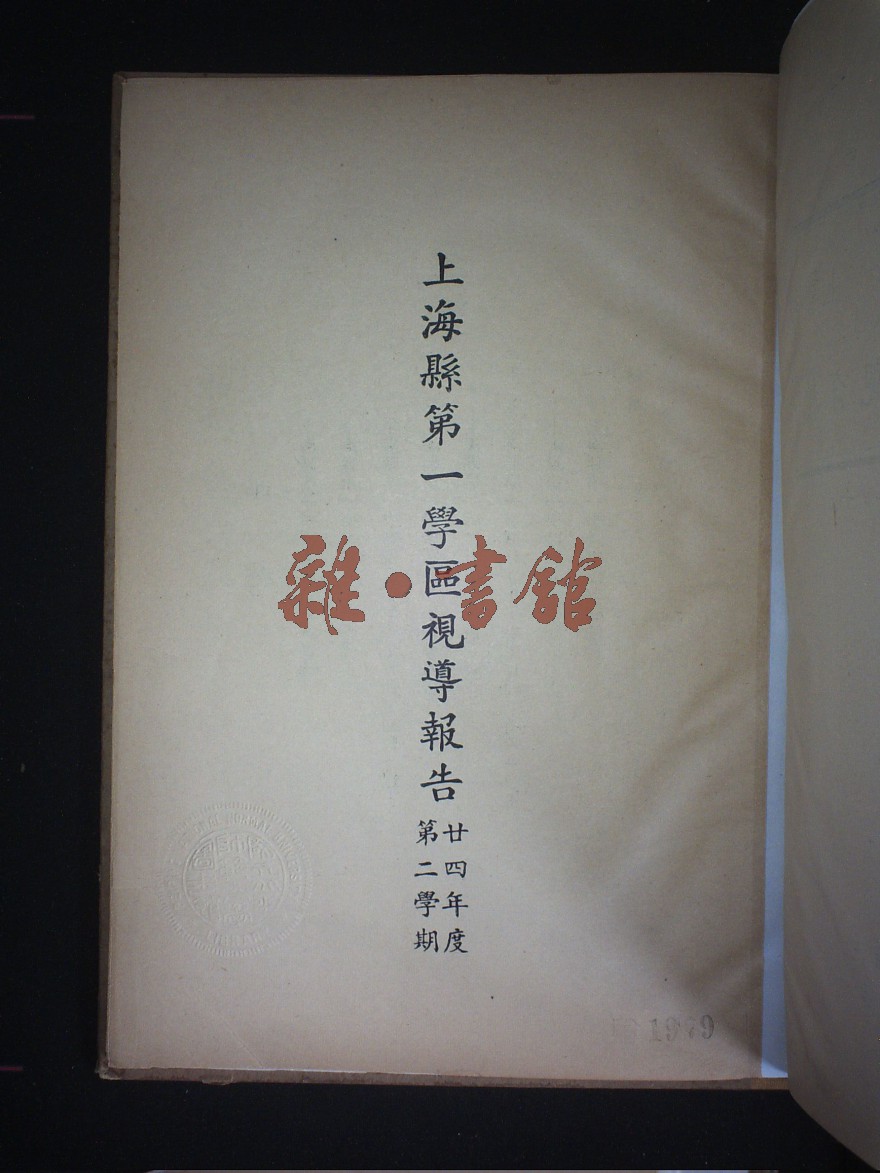 上海縣第一學區視導報告
廿四年度
第二學期
雜·書館
1979